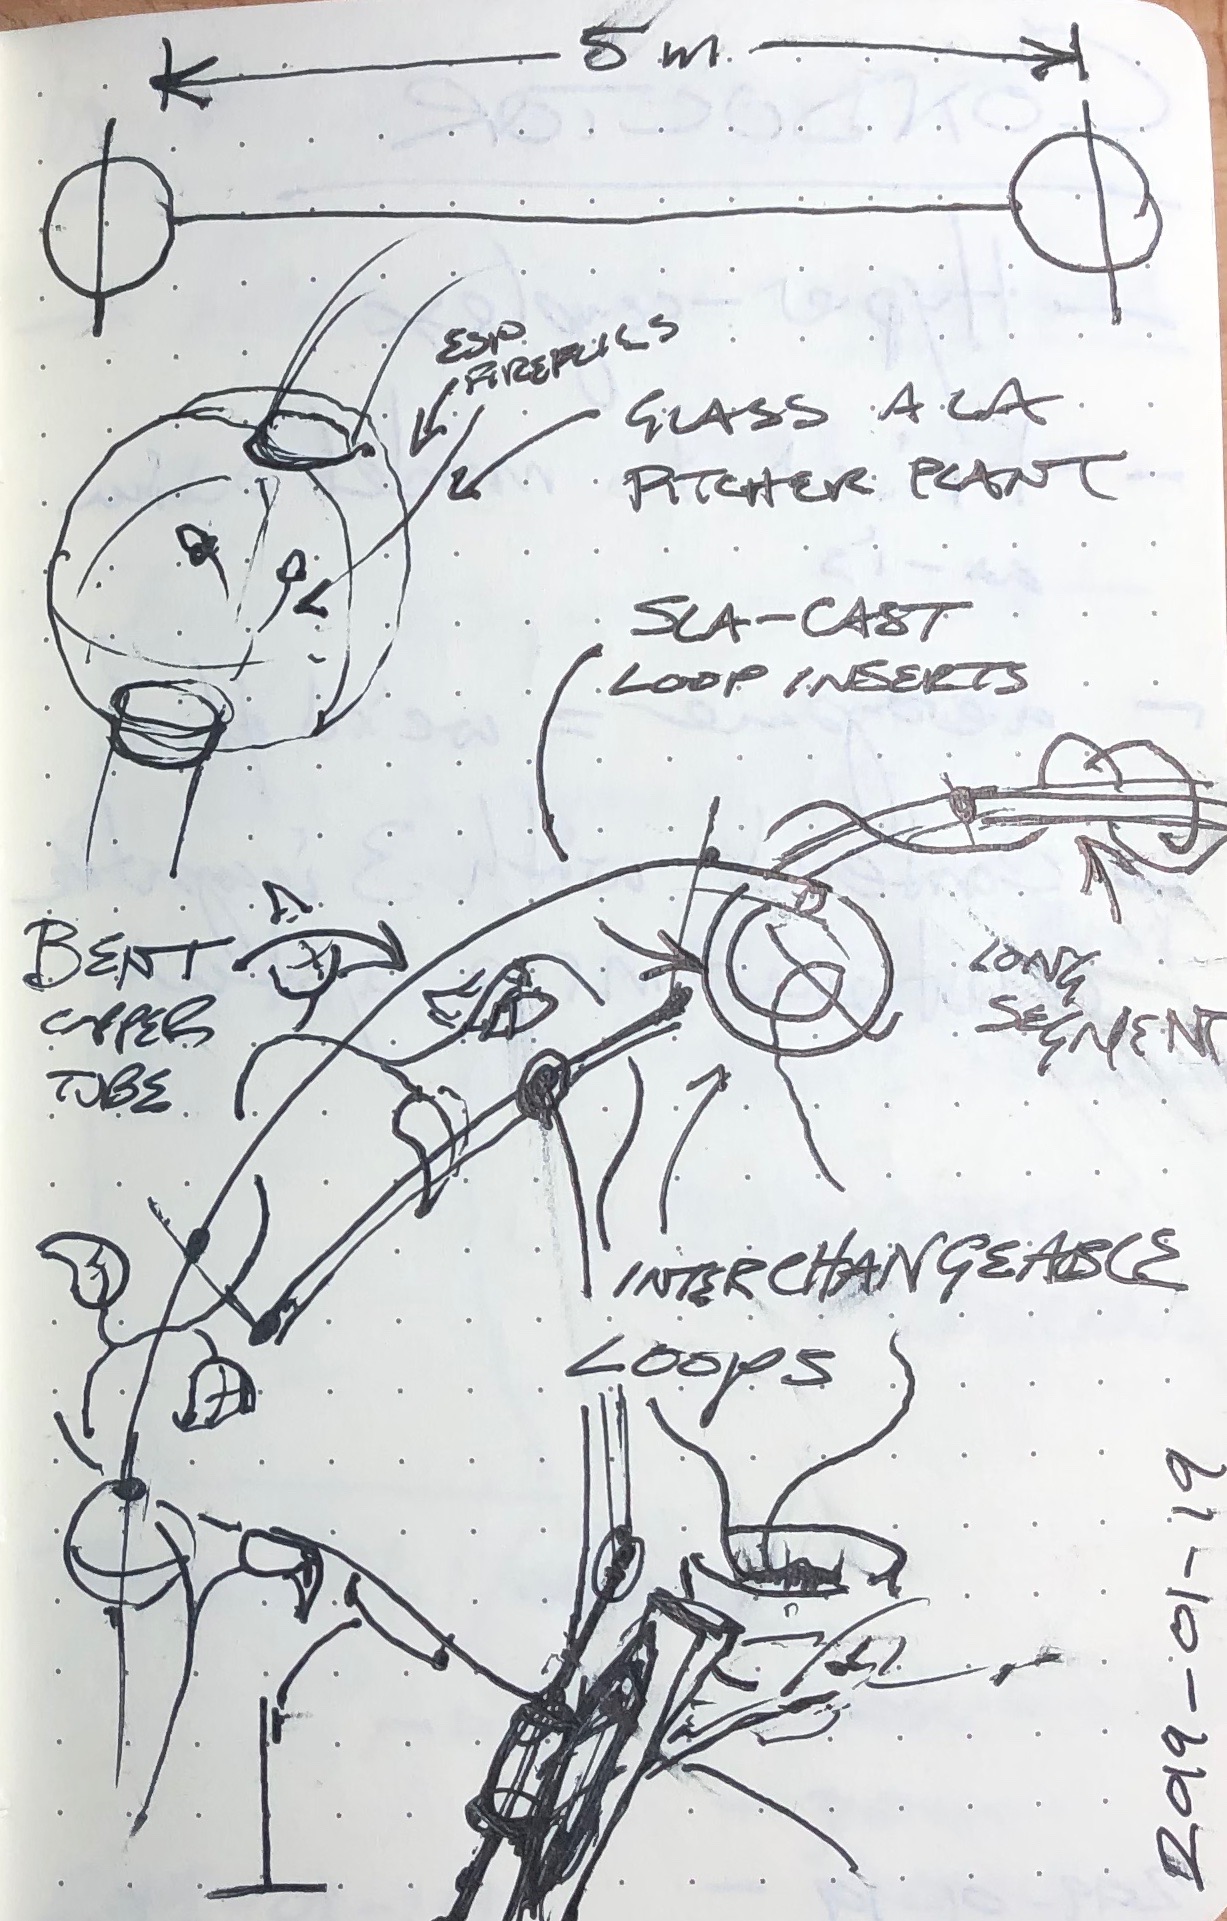 5 m.
ESP
FIREFLIES
GLASS A LA
PITCHER PLANT
SLA-CAST
LOOP INSERTS
BENT
COPPER
TUBE
LONG
SEGMENT
INTERCHANGEABLE
LOOPS
2019-01-19